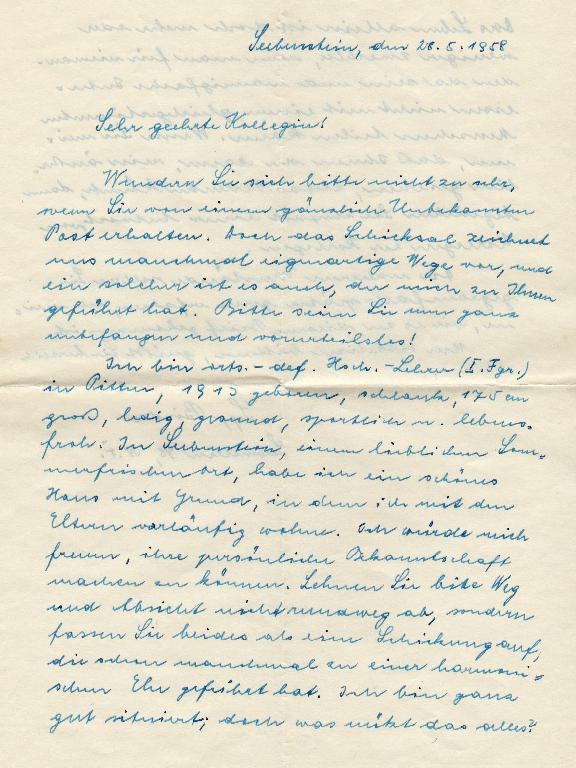 Seebenstein, den 28.5.1958
Sehr geehrte Kollegin!
Wundern Sie sich bitte nicht zu sehr,
wenn Sie von einem gänzlich Unbekannten
Post erhalten. Doch das Schicksal zeichnet
uns manchmal eigenartige Wege vor, und
ein solcher ist es auch, der mich zu Ihnen
geführt hat. Bitte seien Sie nun ganz
unbefangen und vorurteilslos!
Ich bin orts.-def. Hsch.-Lehrer (I. Fgr.)
in Pitten, 1913 geboren, schlank, 175 cm
groß, ledig, gesund, sportlich u. lebens-
froh. In Seebenstein, einem lieblichen Som-
merfrischenort, habe ich ein schönes
Haus mit Grund, in dem ich mit den
Eltern vorläufig wohne. Ich würde mich
freuen, ihre persönliche Bekanntschaft
machen zu können. Lehnen Sie bitte Weg
und Absicht nicht rundweg ab, sondern
fassen Sie beides als eine Schickung auf,
die schon manchmal zu einer harmoni-
schen Ehe geführt hat. Ich bin ganz
gut situiert; doch was nützt das alles?